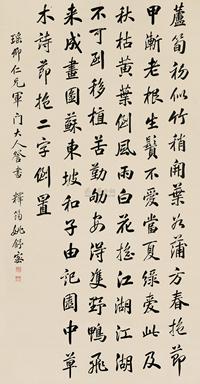 蘆筍初似竹稍開葉如蒲方春抱節
甲漸老根生鬚不愛當夏綠愛此及
秋枯黃葉倒風雨白花搖江湖江湖
不可到移植苦勤劬安得雙野鴨飛
來成畫圖蘇東坡和子由記園中草
木詩節抱二字倒置
瑤卿仁兄軍門大人詧書 姚舒密